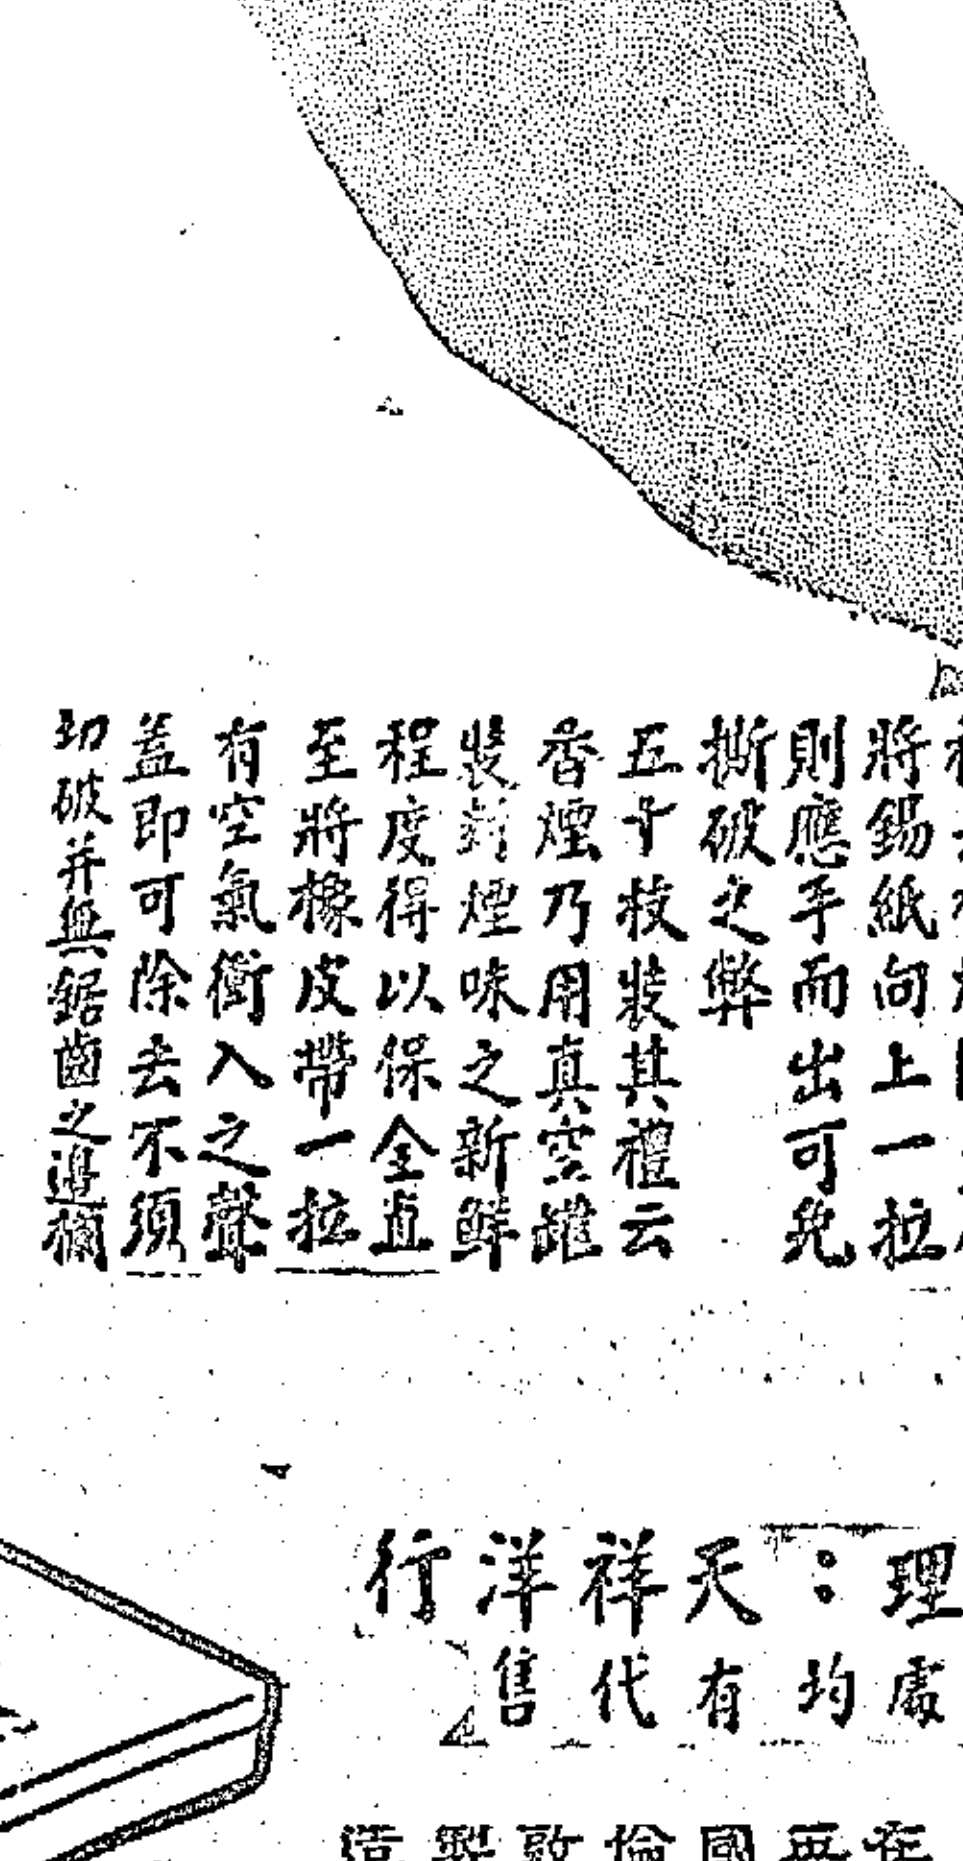 將錫紙向上一拉
則應手而出可免
撕破之弊
五十枝裝其禮云
香煙乃用真空罐
裝封煙味之新鮮
程度得以保全直
至將橡皮帶一拉
有空氣衝入之聲
蓋即可除去不須
切破并無鋸齒之邊
理：天祥洋行
處均有代售
國倫敦製造